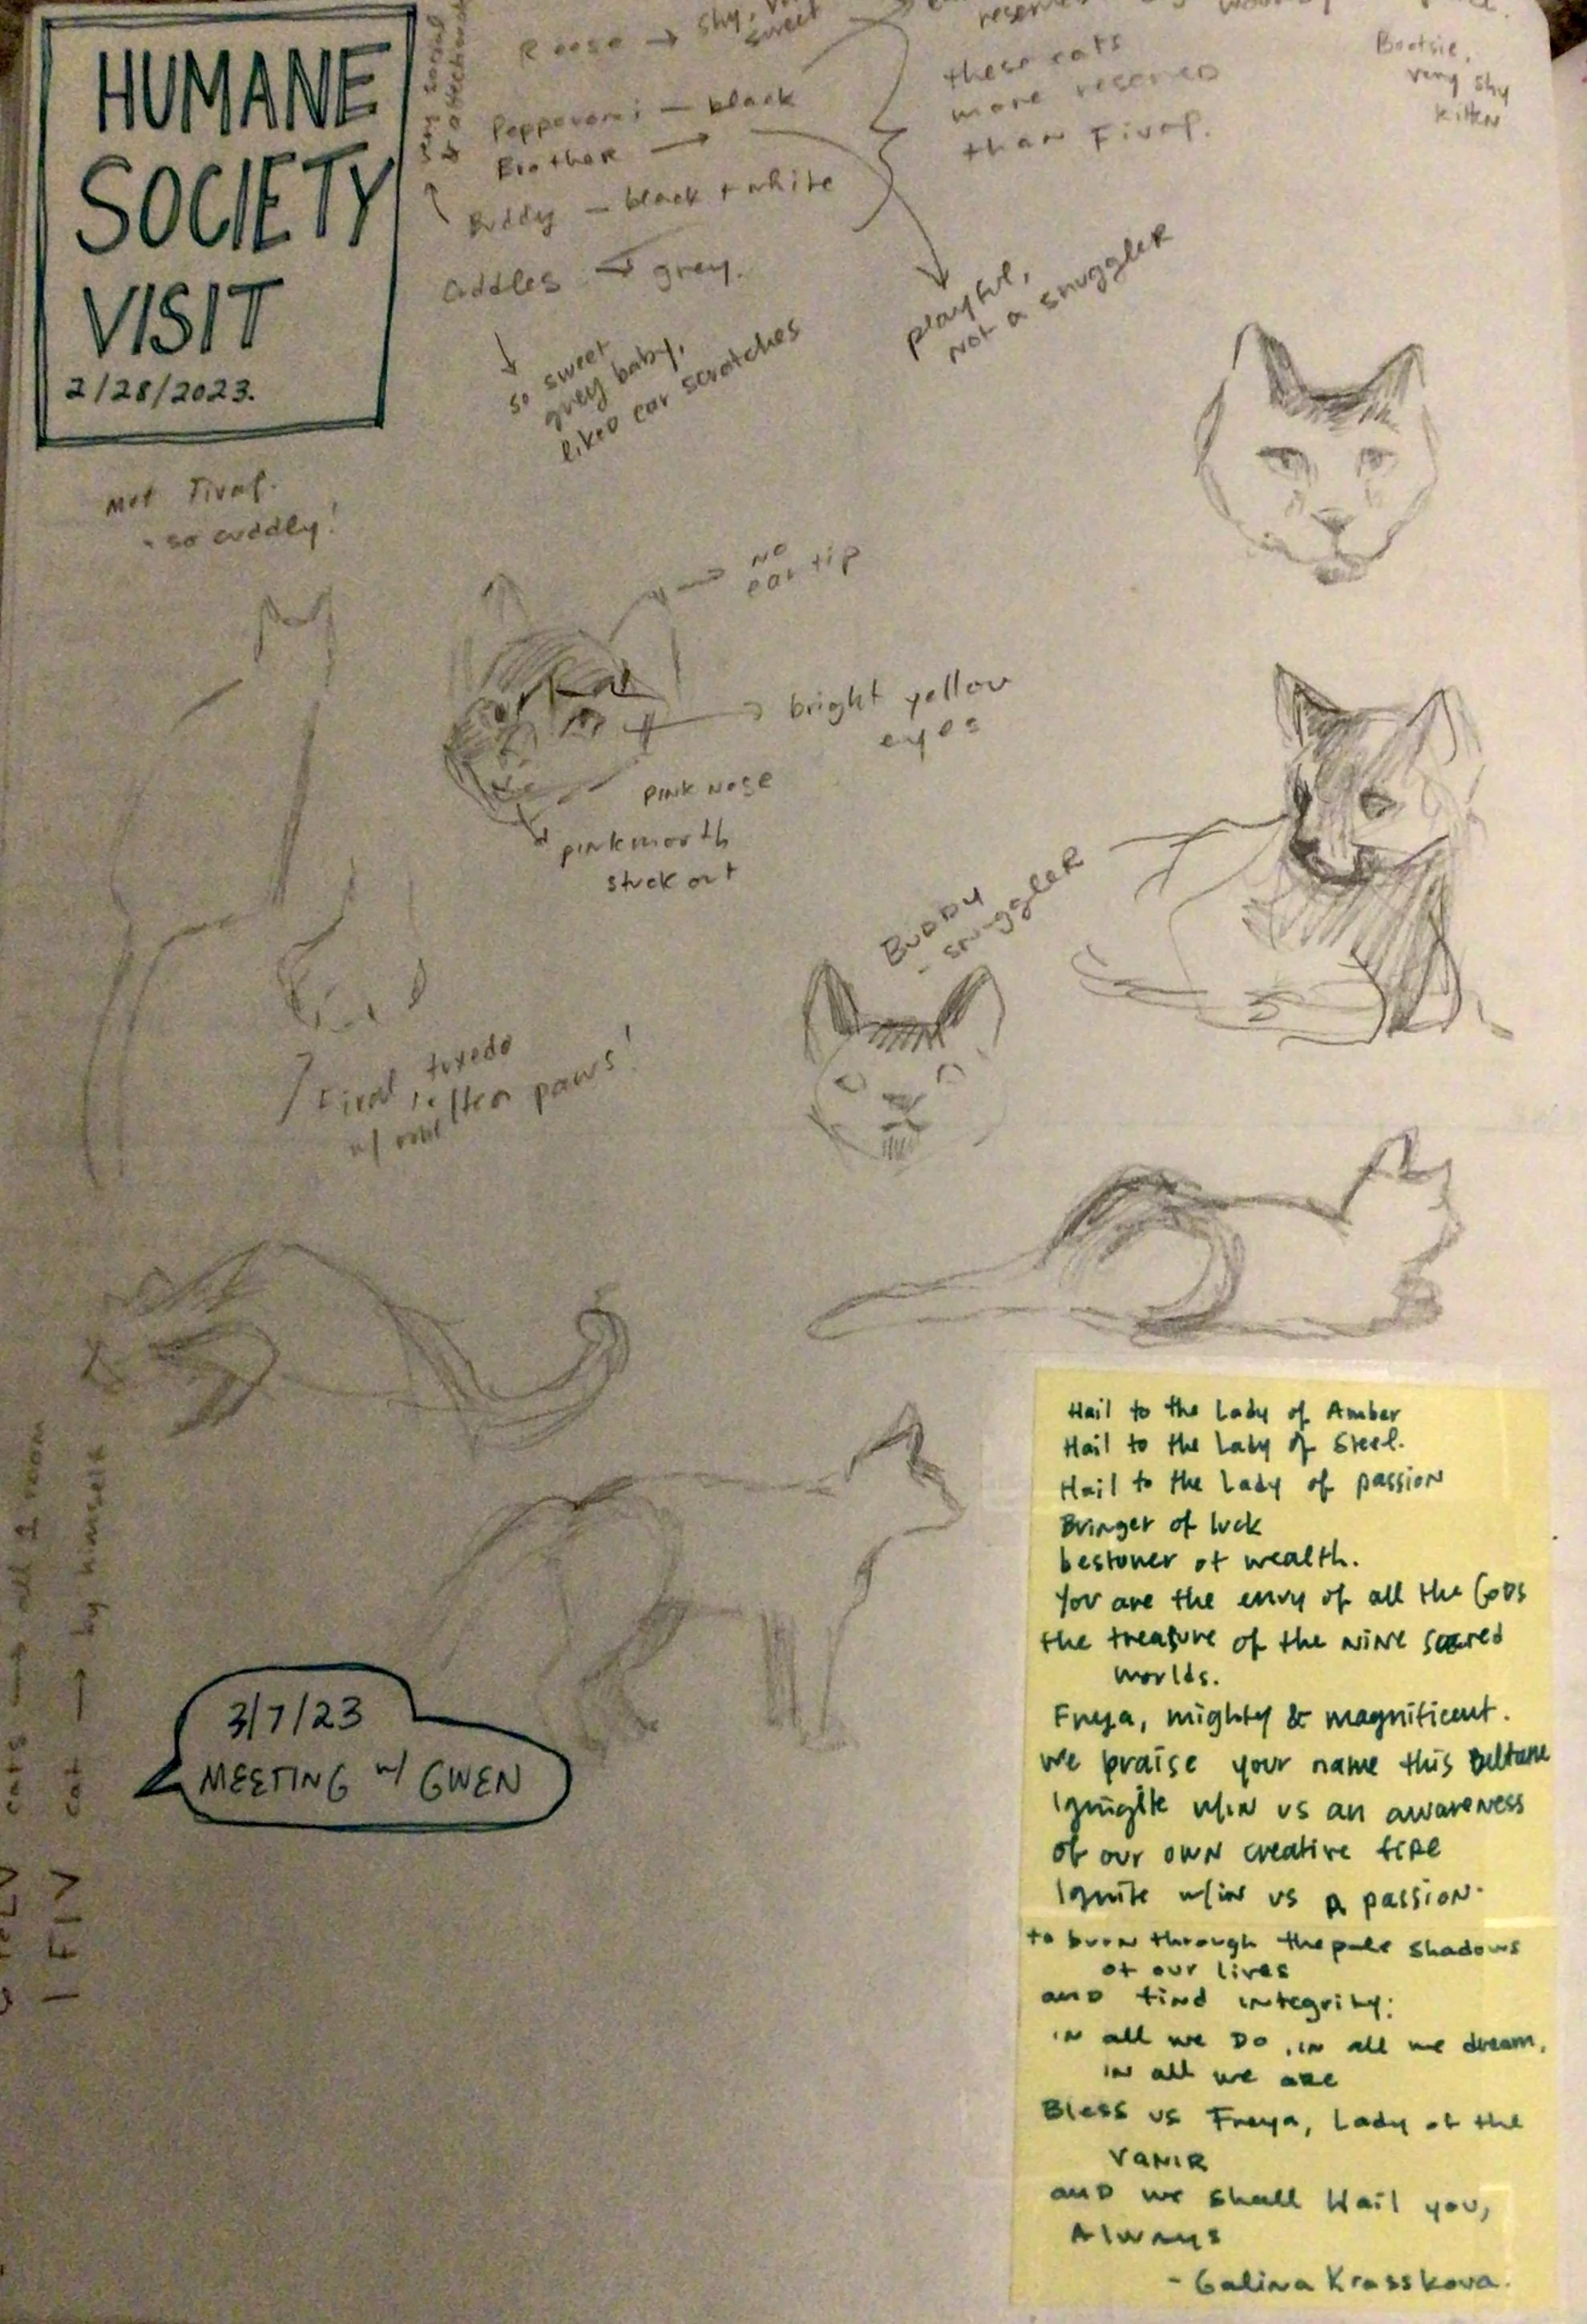 HUMANE
SOCIETY
VISIT
2/28/2023.
very social
& affectionate
Reese → shy,
sweet
Pepperoni - black
Brother →
Buddy - black + white
Cuddles → grey.
so sweet
grey baby,
liked ear scratches
these cats
more reserved
than Fival.
Bootsie,
very shy
kitten
playful,
not a snuggler
Met Fival.
- so cuddly!
NO
ear tip
bright yellow
eyes
pink nose
pink mouth
stuck out
BUDDY
- snuggler
Fival, tuxedo
w/ mitten paws!
cats → all 1 room
1 FIV cat → by himself
3/7/23
MEETING w/ GWEN
Hail to the Lady of Amber
Hail to the Lady of Steel.
Hail to the Lady of passion
Bringer of luck
bestower of wealth.
You are the envy of all the Gods
the treasure of the nine sacred
worlds.
Freya, mighty & magnificent.
we praise your name this Beltane
w/in us an awareness
of our own creative fire
Ignite w/in us a passion.
to burn through the pale shadows
of our lives
and find integrity:
in all we Do, in all we dream,
in all we are
Bless us Freya, Lady of the
Vanir
and we shall Hail you,
Always
- Galina Krasskova.